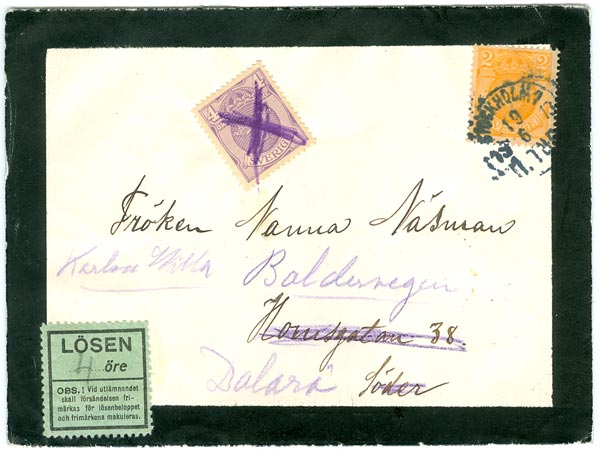 4 4
SVERIGE
2 2
STOCKHOLM 1
19
6
Fröken Nanna Näsman
Karlsro Villa Baldervegen
Hornsgatan 38.
Dalarö Söder
LÖSEN
4 öre
OBS.! Vid utlämnandet
skall försändelsen fri-
märkas för lösenbeloppet
och frimärkena makuleras.